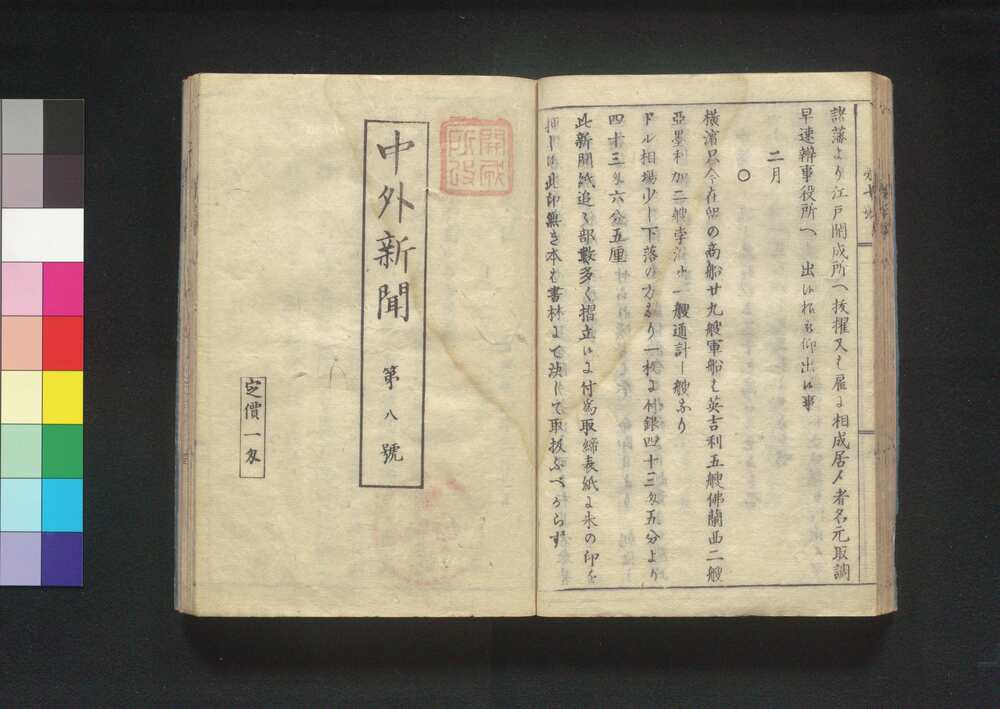 諸藩より江戸開成所へ抜擢又は雇に相成居候者名元取調
早速辨事役所へ
二月
○
横濱只今在留の商船廿九艘軍船は英吉利五艘佛蘭西二艘
亞墨利加二艘孛漏生一艘通計十艘なり
ドル相場少し下落の方なり一枚に付銀四十三匁五分より
四十三匁六分五厘
此新聞紙追々部數多く摺立候に付為取締表紙に朱の印を
押し候此印無き本は書林にて決して取扱ふべからず
開成所改
中外新聞 第八號
定價一匁